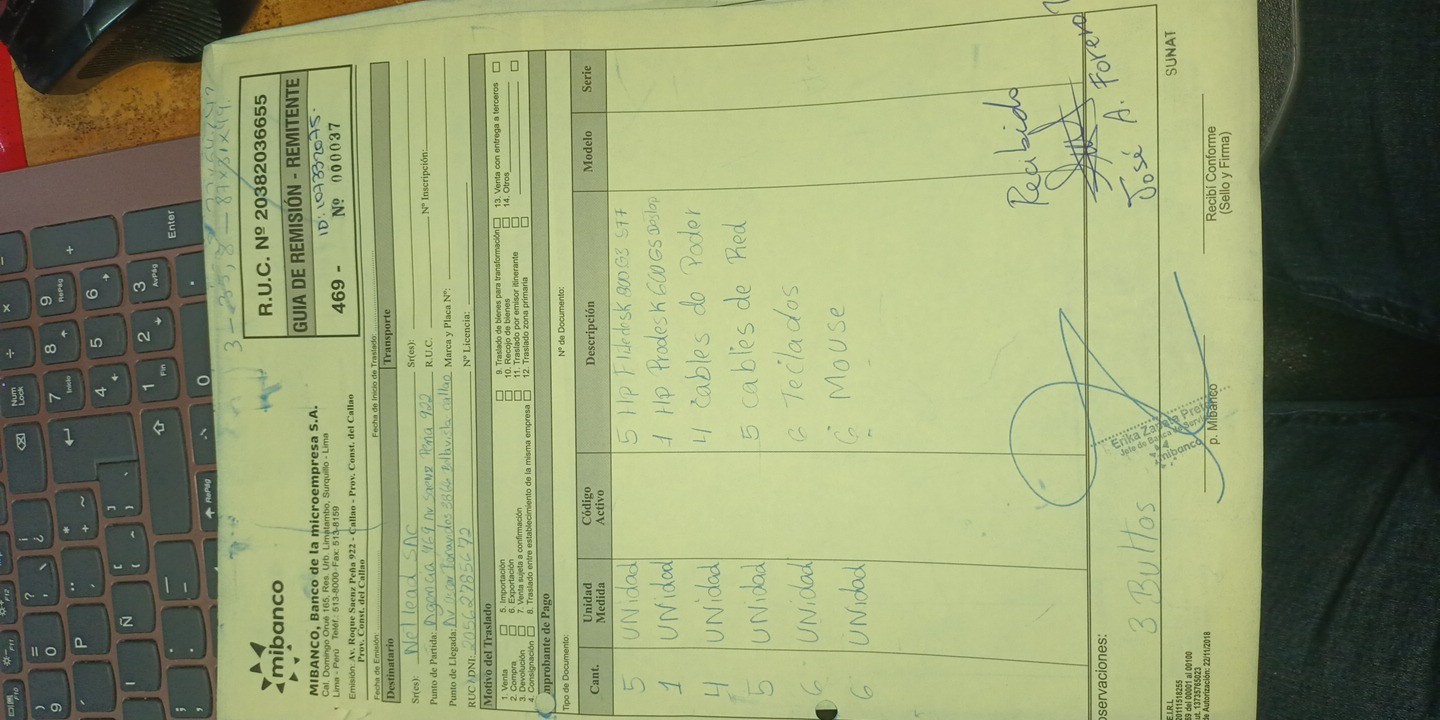 mibanco
MIBANCO, Banco de la microempresa S.A.
Cal. Domingo Orué 165, Res. Urb. Limatambo, Surquillo - Lima
Lima - Perú Teléf.: 513-8000 Fax: 513-8159
Emisión: Av. Roque Saenz Peña 922 - Callao - Prov. Const. del Callao
Prov. Const. del Callao
R.U.C. Nº 20382036655
GUIA DE REMISIÓN - REMITENTE
469 - Nº 000037
Fecha de Emisión: Fecha de Inicio de Traslado:
Destinatario Transporte
Sr(es): Sr(es):
Punto de Partida: Agencia 469 Av Saenz Peña 922 R.U.C.
Nº Inscripción:
Punto de Llegada: Marca y Placa Nº:
RUC / DNI: Nº Licencia:
Motivo del Traslado
1. Venta 5. Importación 9. Traslado de bienes para transformación 13. Venta con entrega a terceros
2. Compra 6. Exportación 10. Recojo de bienes 14. Otros
3. Devolución 7. Venta sujeta a confirmación 11. Traslado por emisor itinerante
4. Consignación 8. Traslado entre establecimiento de la misma empresa 12. Traslado zona primaria
mprobante de Pago
Tipo de Documento: Nº de Documento:
Cant. Unidad Medida Código Activo Descripción Modelo Serie
5 UNidad 5 HP
1 UNidad 1 HP Prodesk 600 G5
4 UNidad 4 Cables de Poder
5 UNidad 5 Cables de Red
6 UNidad 6 Teclados
6 UNidad 6 Mouse
Recibido
José A. Forero
bservaciones:
3 Bultos
Erika Zapata
Jefe de Banca de Servicio
mibanco
p. Mibanco
Recibí Conforme
(Sello y Firma)
SUNAT
E.I.R.L
20111518255
69 del 00001 al 00100
ut. 13735765023
de Autorización: 22/11/2018
Num Lock
7 Inicio
8
9 RePág
+
4
5
6
1 Fin
2
3 AvPág
Enter
0
RePág
P
Ñ
F10
F11
F12